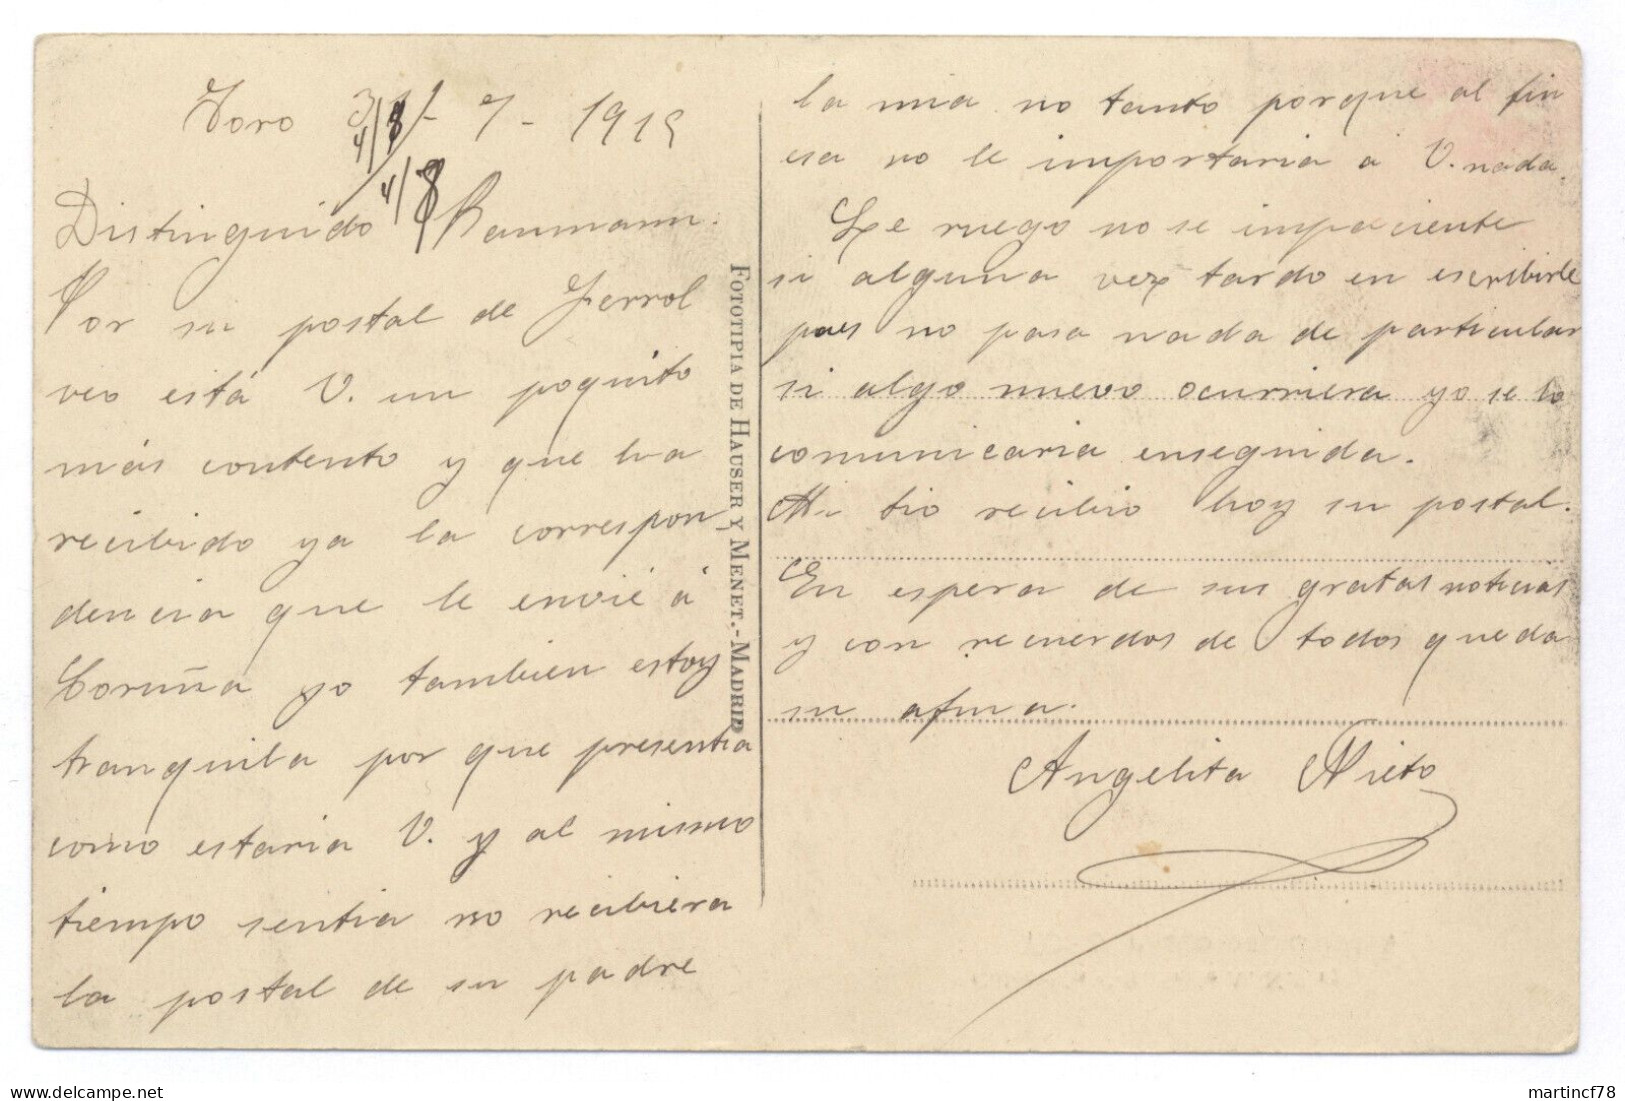 Toro 31 - 7 - 1919
4/8
4/8
Distinguido Baumann.
Por su postal de Ferrol
veo está V. un poquito
más contento y que ha
recibido ya la correspon
dencia que le envié á
Coruña yo tambien estoy
tranquila por que presentia
como estaria V. y al mismo
tiempo sentia no recibiera
la postal de su padre
la mia no tanto porque al fin
esa no le importaria a V. nada.
Le ruego no se impaciente
si alguna vez tardo en escribirle
pues no pasa nada de particular
si algo nuevo ocurriera yo se lo
comunicaria enseguida.
Mi tio recibio hoy su postal.
En espera de sus gratas noticias
y con recuerdos de todos queda
su afma.
Angelita Nieto
FOTOTIPIA DE HAUSER Y MENET.-MADRID
delcampe.net
martincf78